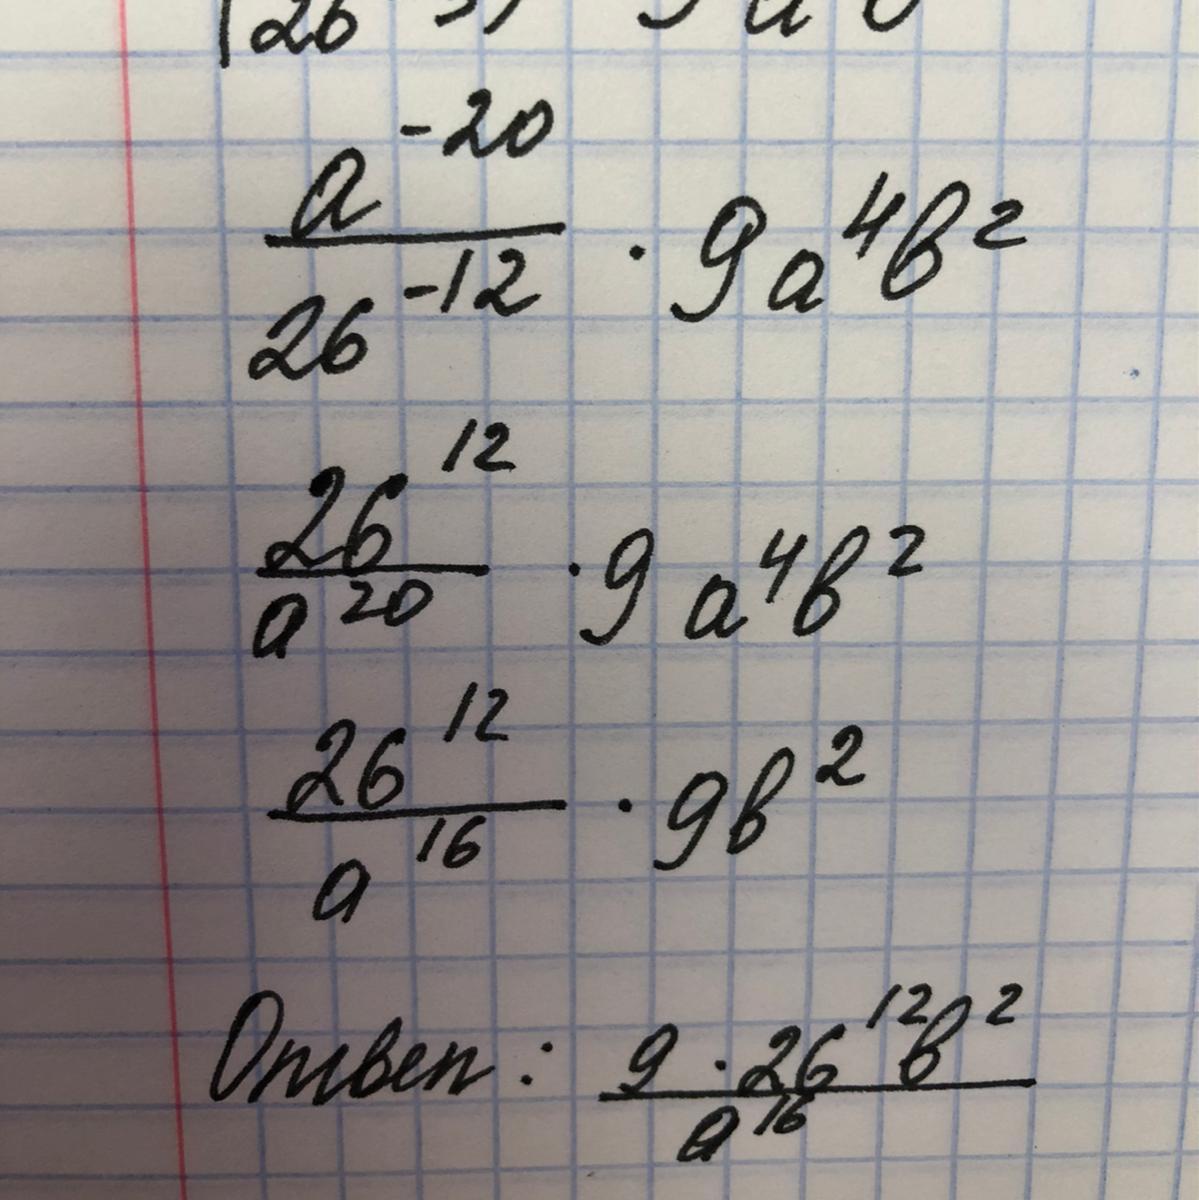 a^-20 / 26^-12 · 9a^4b^2
26^12 / a^20 · 9a^4b^2
26^12 / a^16 · 9b^2
Ответ: 9 · 26^12b^2 / a^16